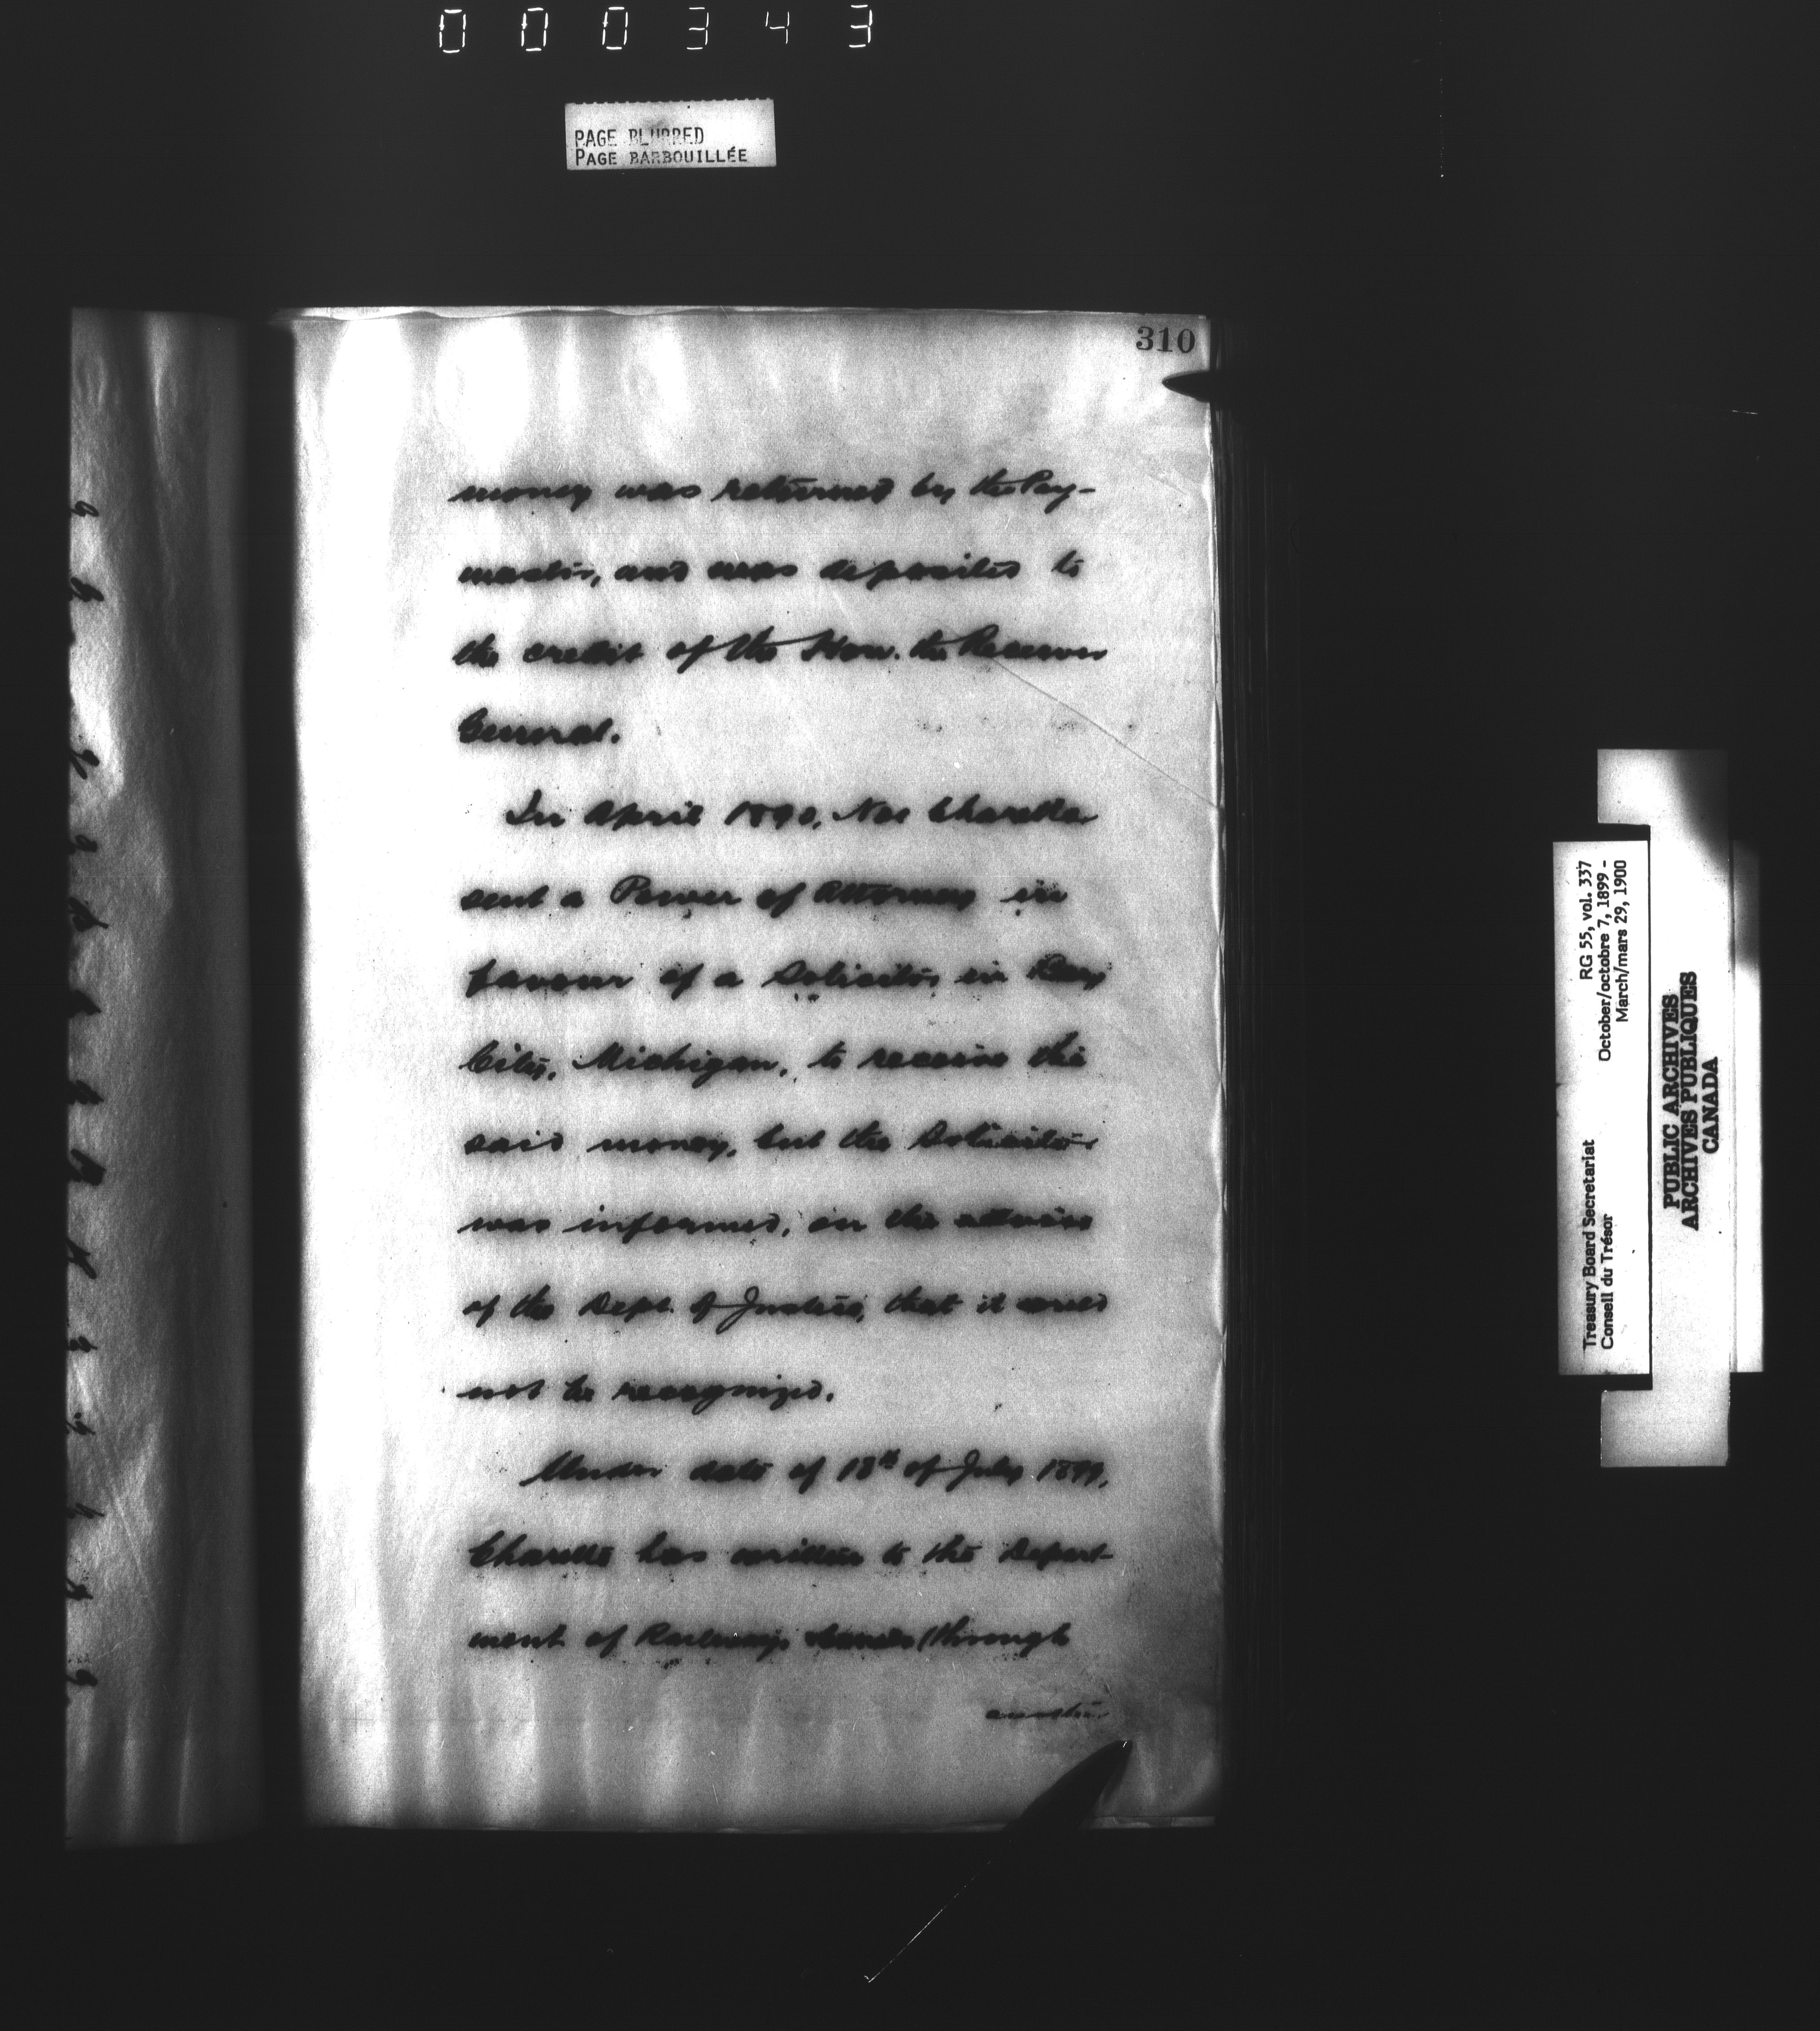 000343
PAGE BLURRED
PAGE BARBOUILLÉE
310
money was returned by the Pay-
master, and was deposited to
the credit of the Hon. the Receiver
General.
In April 1890, Charette
sent a Power of Attorney in
favour of a Solicitor in Bay
City, Michigan, to receive the
said money, but the Solicitor
was informed, on the advice
of the Dept. of Justice, that it could
not be recognized.
Under date of 18th of July 1899,
Charette has written to the Depart-
ment of Railways (through
RG 55, vol. 337
October/octobre 7, 1899 -
March/mars 29, 1900
Treasury Board Secretariat
Conseil du Trésor
PUBLIC ARCHIVES
ARCHIVES PUBLIQUES
CANADA